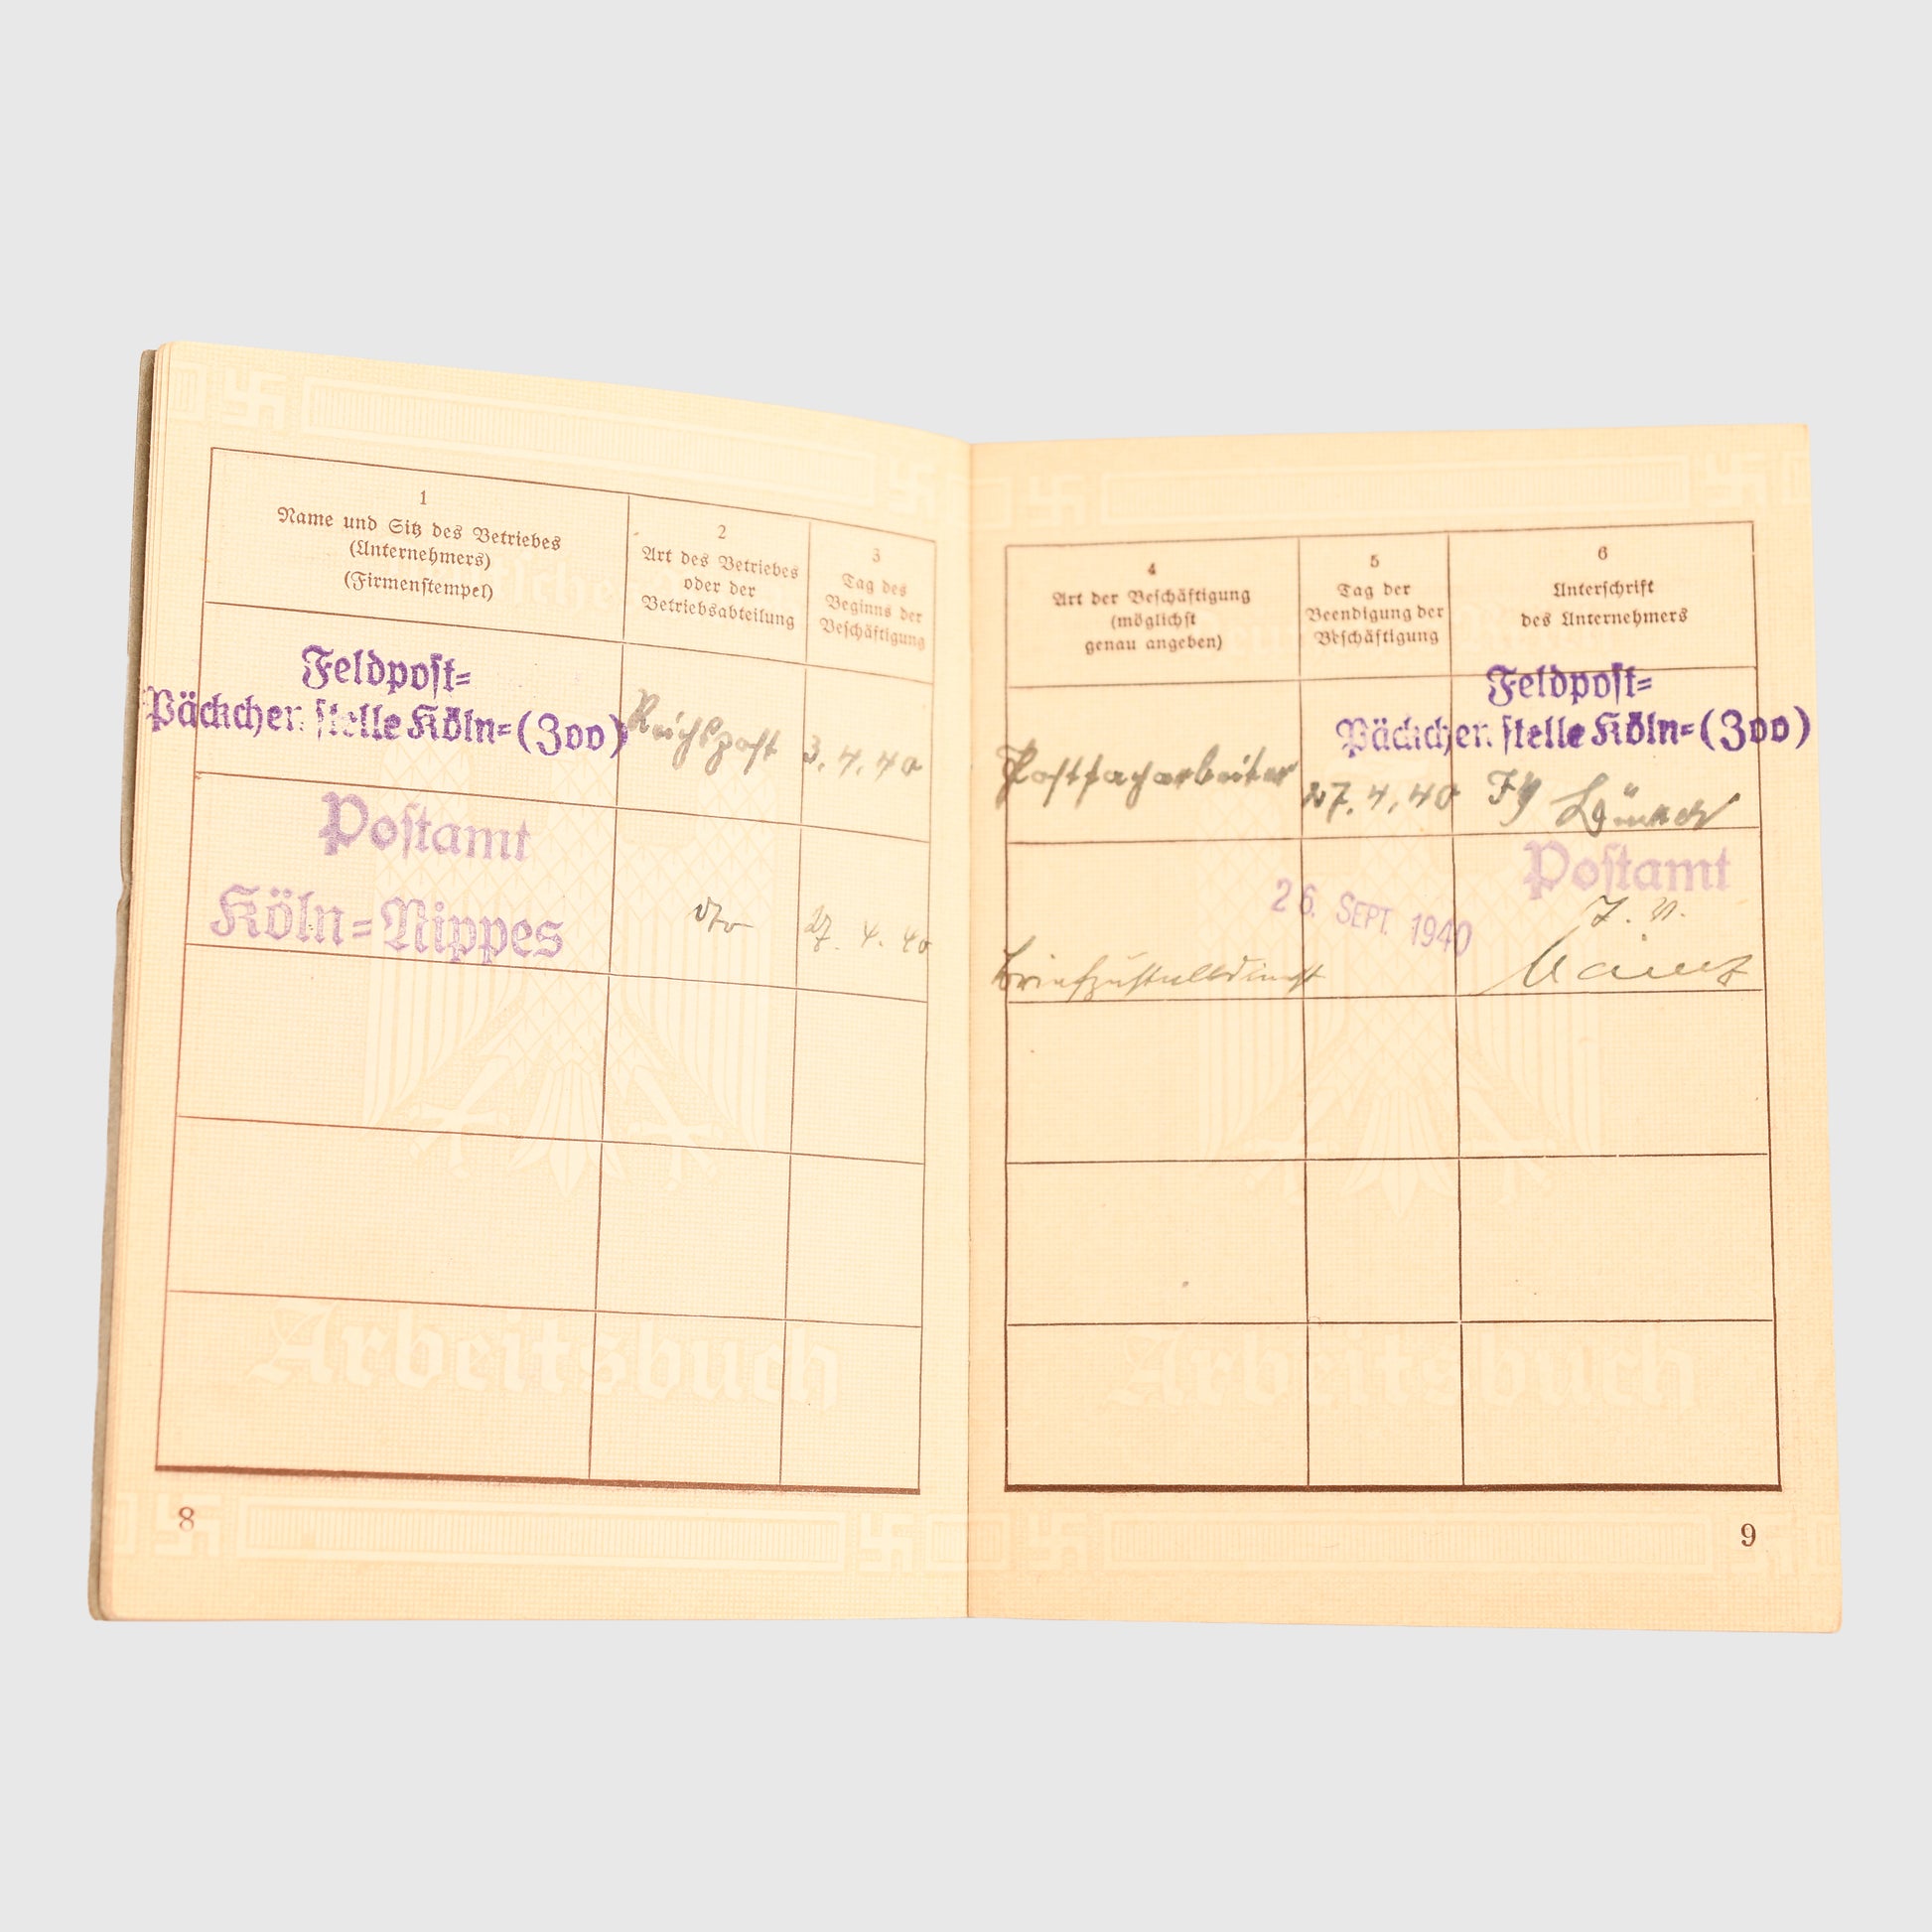 1
Name und Sitz des Betriebes
(Unternehmers)
(Firmenstempel)
2
Art des Betriebes
oder der
Betriebsabteilung
3
Tag des
Beginns der
Beschäftigung
Feldpost=
Päckchenstelle Köln=(Zoo)
Reichspost
3.4.40
Postamt
Köln=Nippes
dto
27. 4. 40
Arbeitsbuch
8
4
Art der Beschäftigung
(möglichst
genau angeben)
5
Tag der
Beendigung der
Beschäftigung
6
Unterschrift
des Unternehmers
Feldpost=
Päckchenstelle Köln=(Zoo)
Postfacharbeiter
27.4.40
Postamt
26. SEPT. 1940
Briefzustelldienst
Arbeitsbuch
9